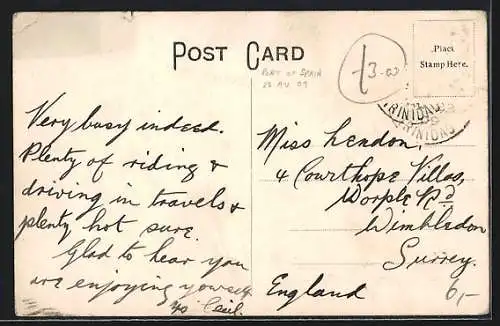 POST CARD
Place
Stamp Here.
PORT OF SPAIN
23 AU 09
13-00
TRINIDAD
TRINIDAD
Very busy indeed.
Plenty of riding &
driving in travels &
plenty hot sure.
Glad to hear you
are enjoying yourself
yrs Cecil.
Miss Lendon,
4 Courthope Villas,
Worple Rd
Wimbledon
Surrey.
England
6,-